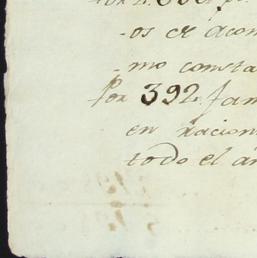 -os er acom
-mo consta
Por 392 fam
en racion
todo el añ